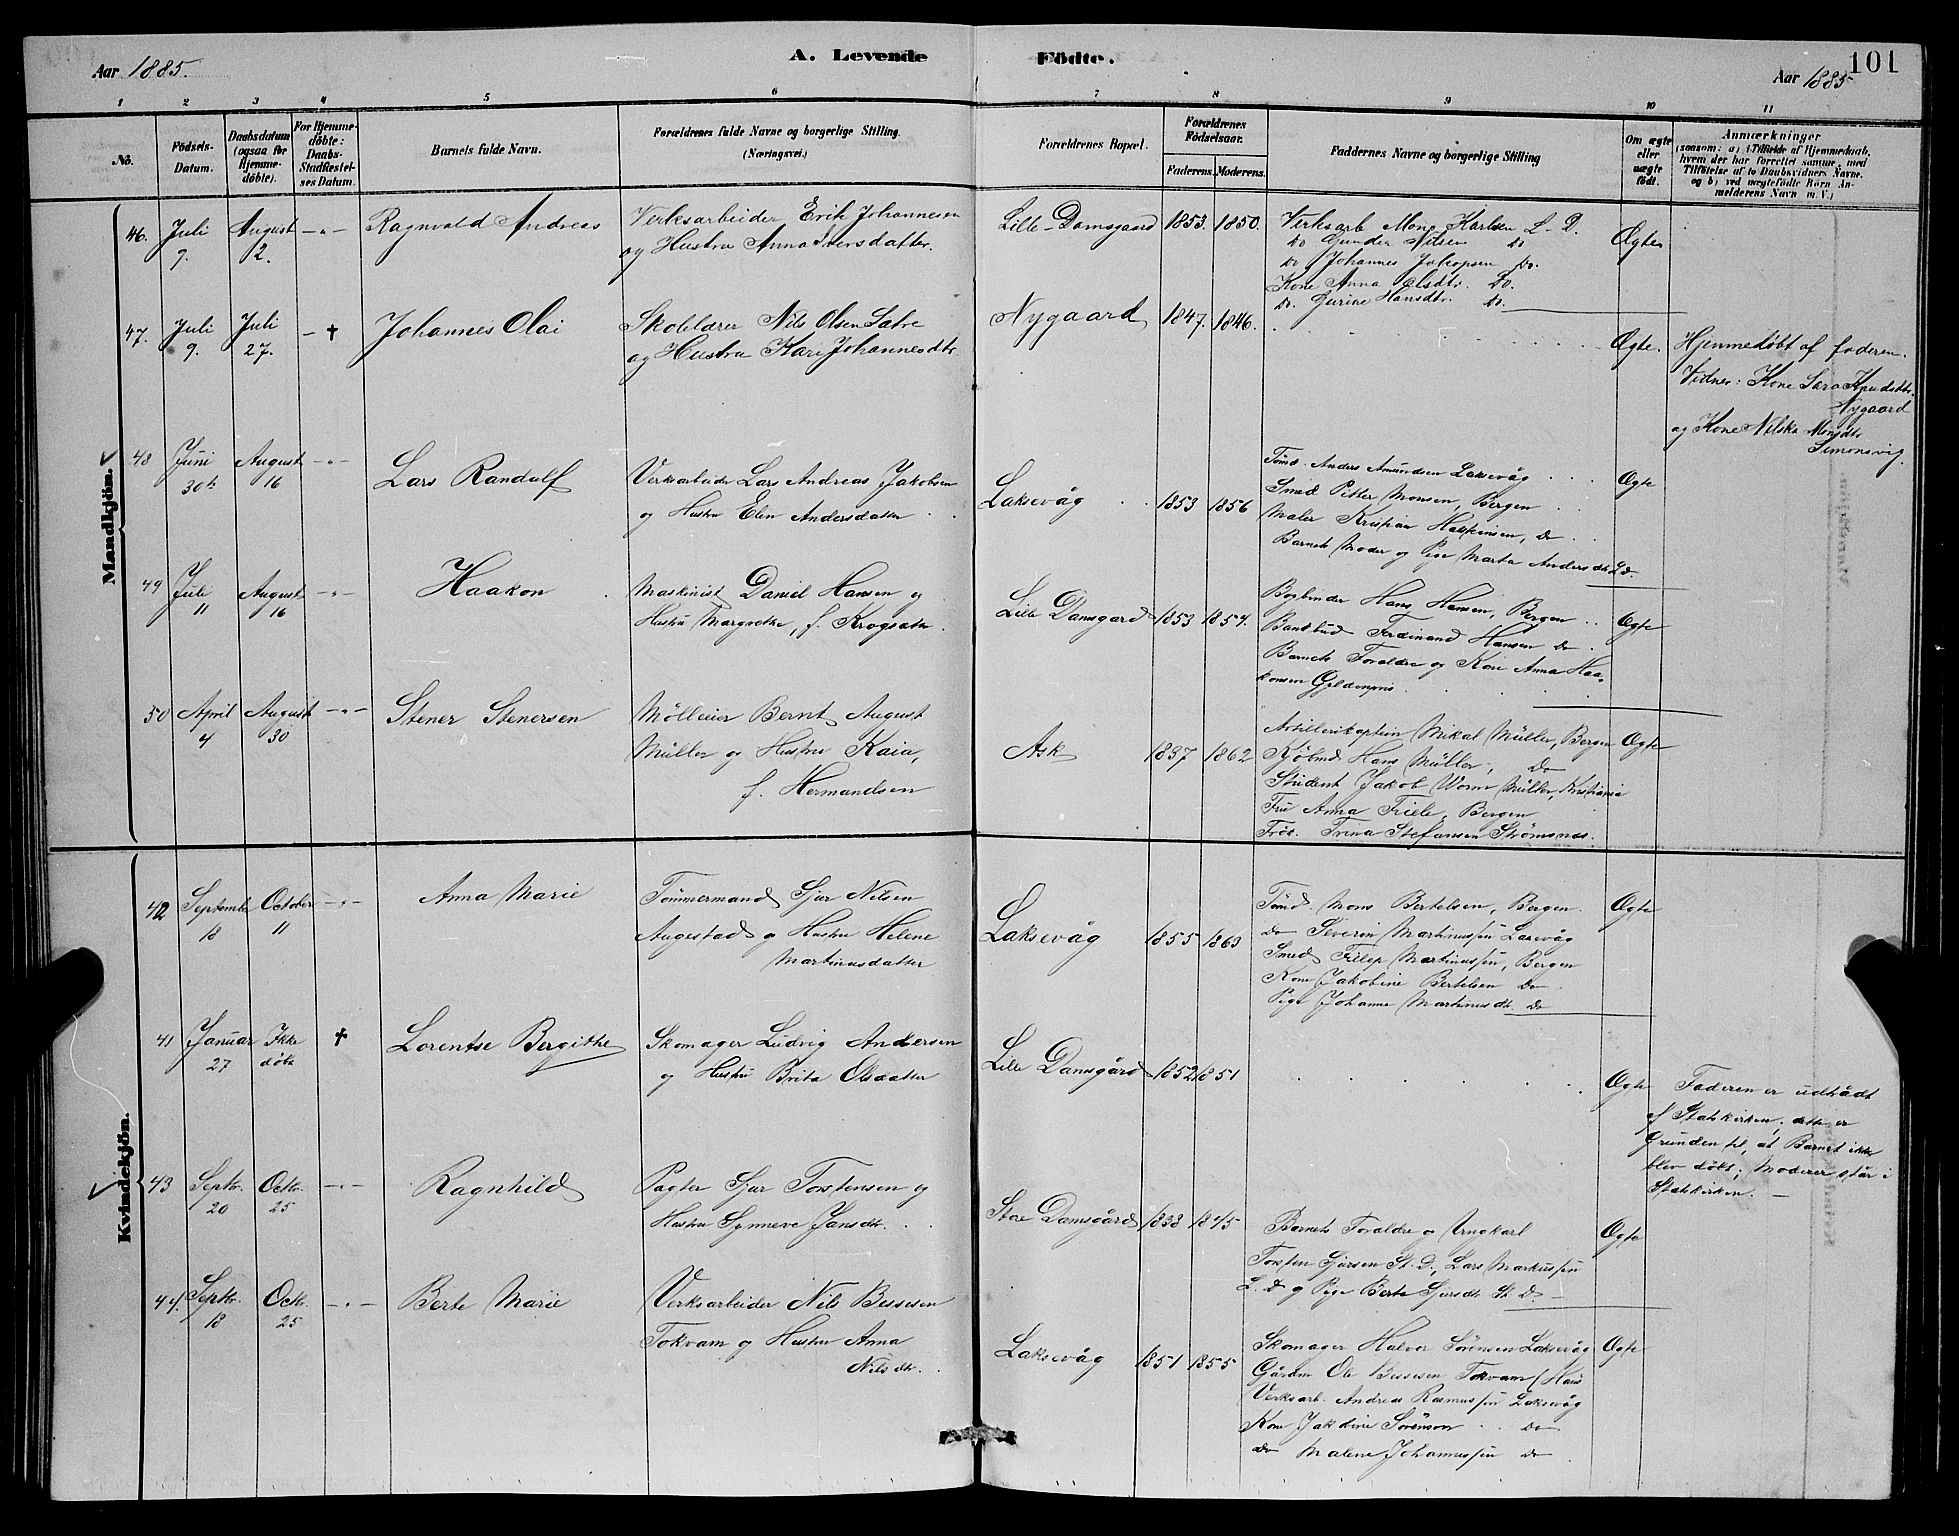 101
Aar 1885.
A. Levende
Födte.
Aar 1885
1 2 3 4 5 6 7 8 9 10 11
No.
Födsels-
Datum.
Daabsdatum
(ogsaa for
Hjemme-
döbte).
For Hjemme-
döbte:
Daabs-
Stadfæstel-
ses Datum.
Barnets fulde Navn.
Forældrenes fulde Navne og borgerlige Stilling.
(Næringsvei.)
Forældrenes Bopæl.
Forældrenes
Födselsaar.
Faderens. Moderens.
Faddernes Navne og borgerlige Stilling
Om ægte
eller
uægte
födt.
Anmærkninger
(saasom: a) i Tilfælde af Hjemmedaab,
hvem der har forrettet samme, med
Tilföielse af to Daabsvidners Navne.
og b) ved uægtefödte Börn An-
melderens Navn m. V.)
Mandkjön.
46. Juli 9. August 2. — " — Ragnvald Andreas
Verksarbeider Erik Johannesen
og Hustru Anna Iversdatter.
Lille-Damsgaard 1853. 1850.
Verksarb Mons Karlsen L. D.
Do Gunder Nilsen Do
Do Johannes Jakopsen Do.
Kone Anna Olsdtr. Do.
Do. Gurine Hansdtr. Do.
Ægte
47. Juli 9. Juli 27. — † Johannes Olai
Skolelærer Nils Olsen Sætre
og Hustru Kari Johannesdtr.
Nygaard 1847. 1846.
Ægte.
Hjemmedøbt af faderen.
Vidner: Kone Sara Knudsdtr.
Nygaard
og Kone Nilska Monsdtr
Simonsvig.
48 Juni 30te August 16 — " — Lars Randulf
Verksarbeider Lars Andreas Jakobsen
og Hustru Elen Andersdatter
Laksevåg 1853 1856
Tømd. Anders Amundsen Laksevåg
Smed Petter Monsen, Bergen
Maler Kristian Haakonsen, Do
Barnets Moder og Pige Marta Andersdtr L.d.
Ægte
49 Juli 11 August 16 — " — Haakon
Maskinist Daniel Hansen og
Hustru Margrethe, f. Krogsæter.
Lille Damsgård 1853 1857.
Bogbinder Hans Hansen, Bergen
Bankbud Ferdinand Hansen Do
Barnets Forældre og Kone Anna Haa-
konsen Gyldenpris
Ægte
50 April 4 August 30 — " — Stener Stenersen
Mølleeier Bernt August
Müller og Hustru Kaia,
f. Hermandsen
Ask 1837 1862
Artillerikaptein Mikal Müller, Bergen
Kjøbmd Hans Müller, Do
Student Jakob Worm Müller, Kristiania
Fru Anna Friele, Bergen
Frøk. Trina Stefansen Strømsnæs.
Ægte
Kvindekjön.
42 September 18 October 11 — " — Anna Marie
Tømmermand Sjur Nilsen
Augestad og Hustru Helene
Martinusdatter
Laksevåg 1855 1863
Tømd. Mons Bertelsen, Bergen.
do Severin Martinussen Laxevåg
Smed Filip Martinussen, Bergen
Kone Jakobine Bertelsen Do
Pige Johanne Martinusdtr. Do
Ægte
41 Januar 27 Ikke døbt † Lorentse Bergithe
Skomager Ludvig Andersen
og Hustru Brita Olsdatter
Lille Damsgård 1852 1851
Ægte
Faderen er udtrådt
af Statskirken, dette er
Grunden til, at Barnet ikke
blev døbt; Moderen står i
Statskirken. —
43 Septbr. 20 Octbr. 25 — " — Ragnhild
Pagter Sjur Torstensen og
Hustru Synneve Jansdtr.
Store Damsgård 1838 1845
Barnets Forældre og Ungkarl
Torsten Sjursen St. D., Lars Markussen
L. D og Pige Berte Sjursdtr St D.
Ægte
44. Septbr. 18 Octbr. 25 — " — Berte Marie
Verksarbeider Nils Bessesen
Tokvam og Hustru Anna
Nilsdtr.
Laksevåg 1851 1855
Skomager Halvor Sørensen Laksevåg
Gårdm Ole Bessesen Tokvam
Verksarb. Andreas Rasmussen Laksevåg
Kone Jakobine Sørensen Do
Do Malene Johannessen Do
Ægte